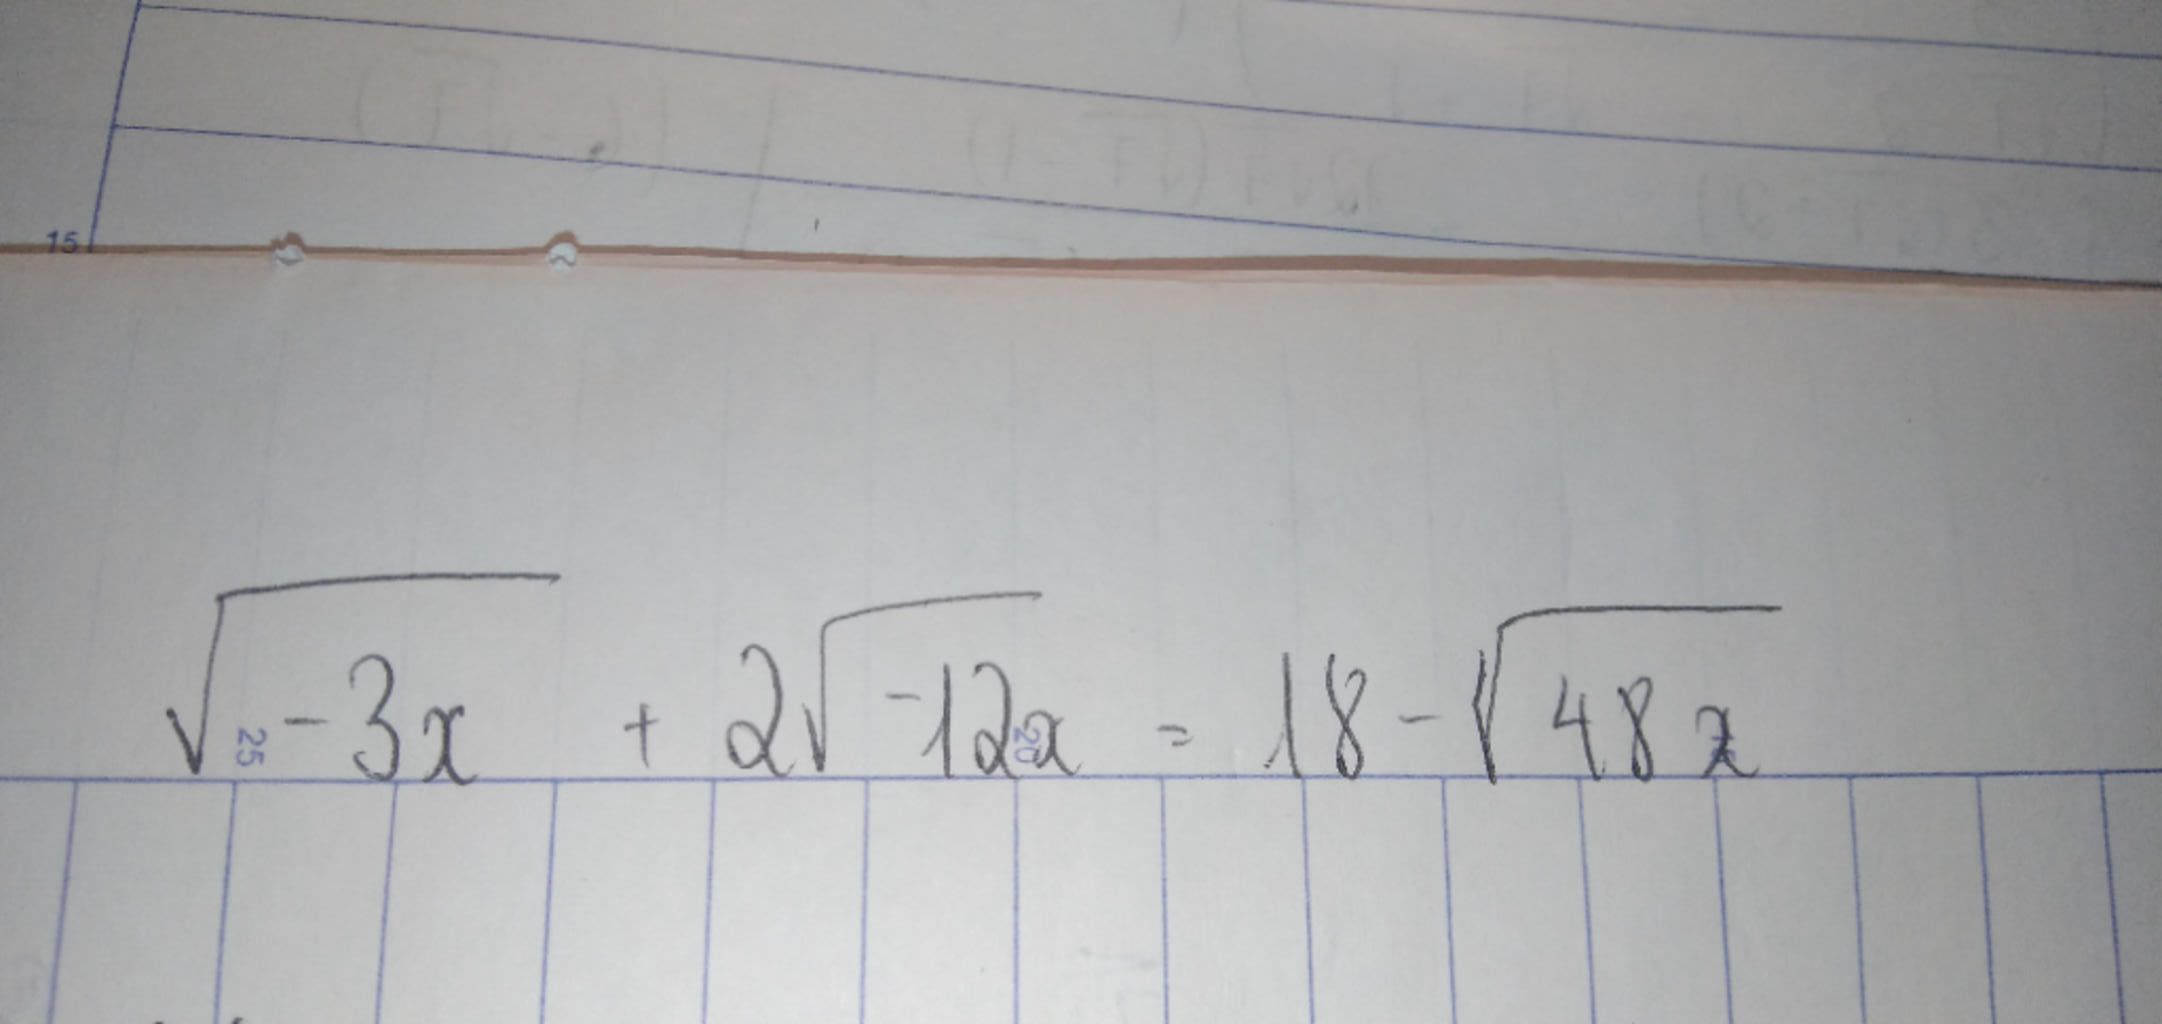 15
√-3x + 2√-12x = 18 - √48x
25
20